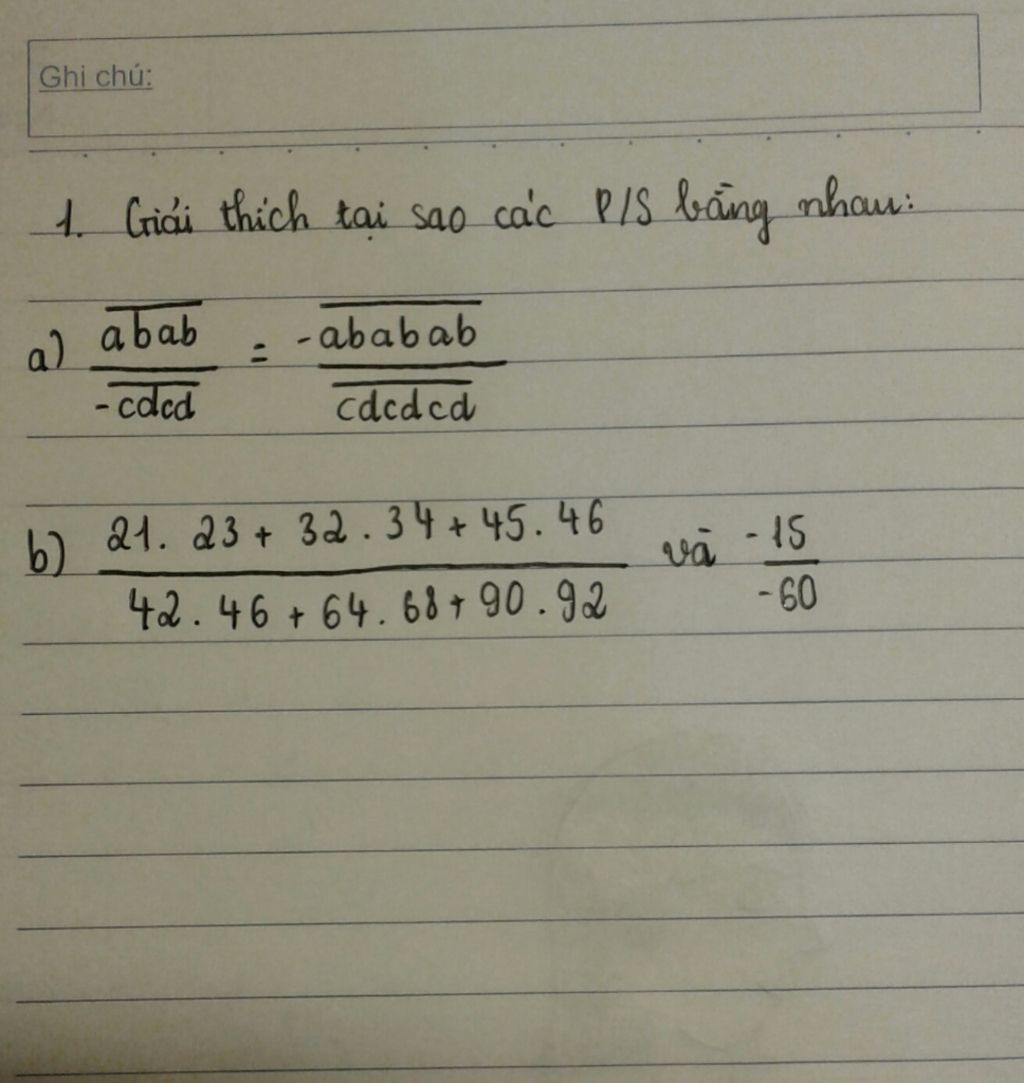 Ghi chú:
1. Giải thích tại sao các P/S bằng nhau:
a) \frac{\overline{abab}}{-\overline{cdcd}} = \frac{-\overline{ababab}}{\overline{cdcdcd}}
b) \frac{21. 23 + 32 . 34 + 45 . 46}{42 . 46 + 64 . 68 + 90 . 92} và \frac{-15}{-60}